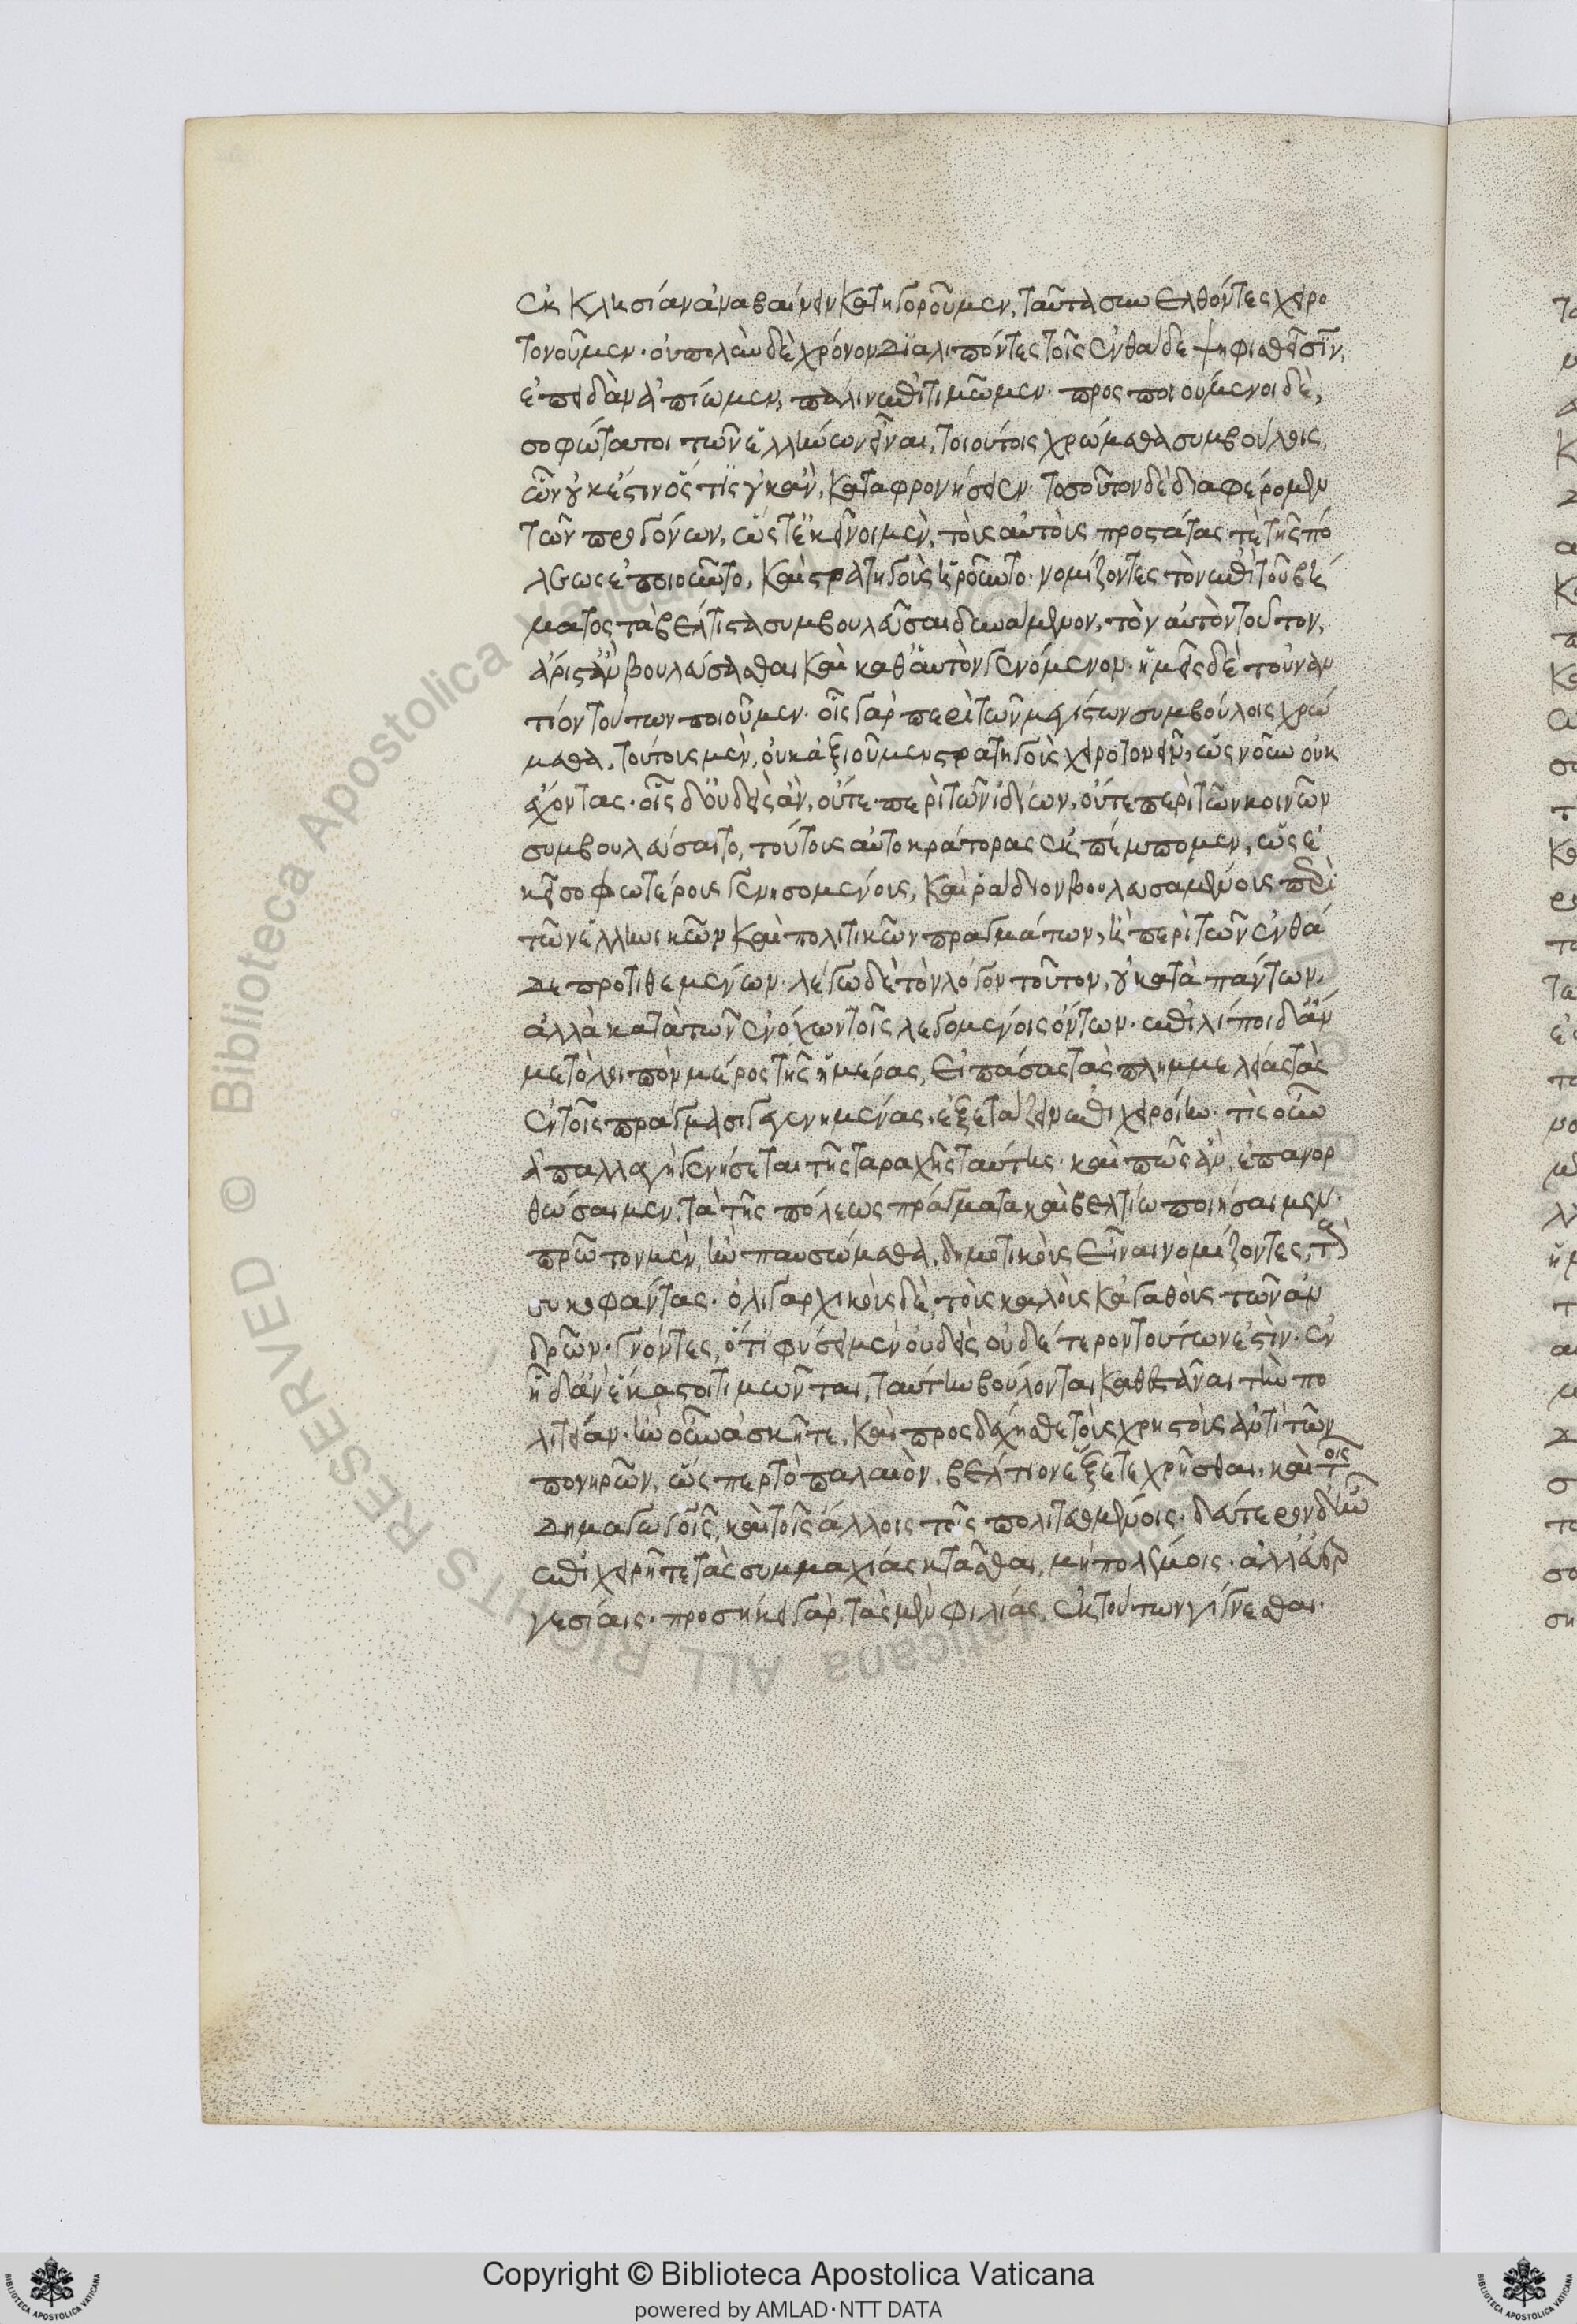 ἐκκλησίαν ἀναβαίνειν κατηγοροῦμεν, ταῦτα συνελθόντες χειρο
τονοῦμεν· οὐ πολὺν δὲ χρόνον διαλιπόντες τοῖς ἐνθάδε ψηφισθεῖσιν,
ἐπειδὰν ἀπίωμεν, πάλιν ἐπιτιμῶμεν· προσποιούμενοι δὲ,
σοφώτατοι τῶν ἑλλήνων εἶναι, τοιούτοις χρώμεθα συμβούλοις,
ὧν οὐκ ἔστιν ὅστις οὐκ ἂν, καταφρονήσειεν· τοσοῦτον δὲ διαφέρομεν
τῶν προγόνων, ὥστ' ἐκεῖνοι μὲν, τοὺς αὐτοὺς προστάτας τε τῆς πό
λεως ἐποιοῦντο, καὶ στρατηγοὺς ἡροῦντο· νομίζοντες τὸν ἐπὶ τοῦ βή
ματος τὰ βέλτιστα συμβουλεῦσαι δυνάμενον, τὸν αὐτὸν τοῦτον,
ἄριστ' ἂν βουλεύσασθαι καὶ καθ' αὑτὸν γενόμενον· ἡμεῖς δὲ τοὐναν
τίον τούτων ποιοῦμεν· οἷς γὰρ περὶ τῶν μεγίστων συμβούλοις χρώ
μεθα, τούτους μὲν, οὐκ ἀξιοῦμεν στρατηγοὺς χειροτονεῖν, ὡς νοῦν οὐκ
ἔχοντας· οἷς δ' οὐδεὶς ἂν, οὔτε περὶ τῶν ἰδίων, οὔτε περὶ τῶν κοινῶν
συμβουλεύσαιτο, τούτους αὐτοκράτορας ἐκπέμπομεν, ὡς ἐ
κεῖ σοφωτέροις γενησομένοις, καὶ ῥᾴδιον βουλευσαμένοις περὶ
τῶν ἑλληνικῶν καὶ πολιτικῶν πραγμάτων, ἢ περὶ τῶν ἐνθά
δε προτιθεμένων· λέγω δὲ τὸν λόγον τοῦτον, οὐ κατὰ πάντων,
ἀλλὰ κατὰ τῶν ἐνόχων τοῖς λεγομένοις ὄντων· ἐπιλίποι δ' ἄν
με τὸ λοιπὸν μέρος τῆς ἡμέρας, εἰ πάσας τὰς πλημμελείας τὰς
ἐν τοῖς πράγμασι γεγενημένας, ἐξετάζειν ἐπιχειροίην· τίς οὖν
ἀπαλλαγὴ γενήσεται τῆς ταραχῆς ταύτης· καὶ πῶς ἂν, ἐπανορ
θώσαιμεν, τὰ τῆς πόλεως πράγματα καὶ βελτίω ποιήσαιμεν·
πρῶτον μὲν, ἢν παυσώμεθα, δημοτικοὺς εἶναι νομίζοντες, τοὺς
συκοφάντας· ὀλιγαρχικοὺς δὲ, τοὺς καλοὺς κἀγαθοὺς τῶν ἀν
δρῶν· γνόντες, ὅτι φύσει μὲν οὐδεὶς οὐδέτερον τούτων ἐστὶν· ἐν
ᾗ δ' ἂν ἕκαστοι τιμῶνται, ταύτην βούλονται καθιστάναι τὴν πο
λιτείαν· ἢν οὖν ἀσκῆτε, καὶ προσδέχησθε τοὺς χρηστοὺς ἀντὶ τῶν
πονηρῶν, ὥσπερ τὸ παλαιὸν, βέλτιον ἕξετε χρῆσθαι, καὶ τοῖς
δημαγωγοῖς, καὶ τοῖς ἄλλοις τοῖς πολιτευομένοις· δεύτερον δ' ἢν
ἐπιχειρῆτε τὰς συμμαχίας κτᾶσθαι, μὴ πολέμοις· ἀλλ' εὐερ
γεσίαις· προσήκει γὰρ, τὰς μὲν φιλίας, ἐκ τούτων γίγνεσθαι·
Copyright © Biblioteca Apostolica Vaticana
powered by AMLAD·NTT DATA